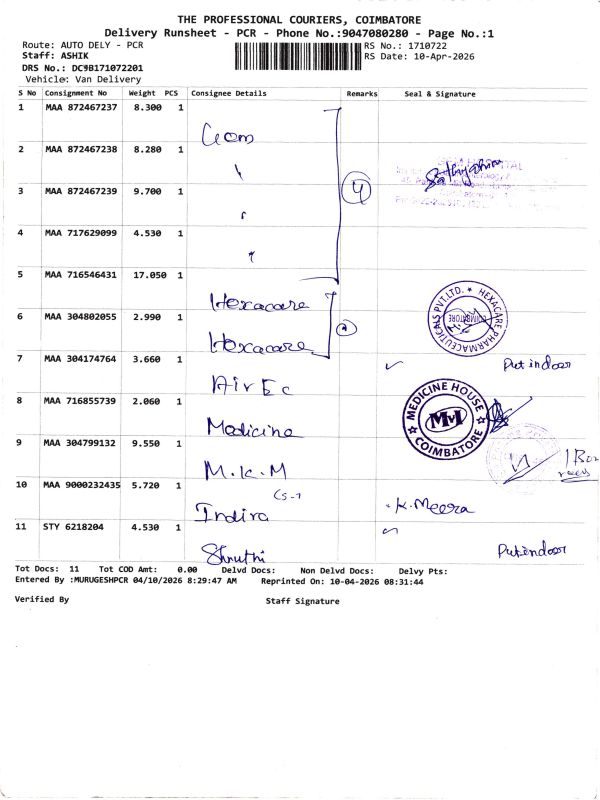 THE PROFESSIONAL COURIERS, COIMBATORE
Delivery Runsheet - PCR - Phone No.:9047080280 - Page No.:1
Route: AUTO DELY - PCR
RS No.: 1710722
Staff: ASHIK
RS Date: 10-Apr-2026
DRS No.: DC9B171072201
Vehicle: Van Delivery
S No Consignment No Weight PCS Consignee Details Remarks Seal & Signature
1 MAA 872467237 8.300 1
Gem
2 MAA 872467238 8.280 1
3 MAA 872467239 9.700 1
4
4 MAA 717629099 4.530 1
5 MAA 716546431 17.050 1
Hexacare
HEXACARE PHARMACEUTICALS PVT.LTD. COIMBATORE
6 MAA 304802055 2.990 1
Hexacare
7 MAA 304174764 3.660 1
Put indoor
Air Ec
8 MAA 716855739 2.060 1
Medicine
MEDICINE HOUSE MH COIMBATORE
9 MAA 304799132 9.550 1
M.K.M
1 Box
10 MAA 9000232435 5.720 1
Indira
K. Meera
11 STY 6218204 4.530 1
Shruthi
Put indoor
Tot Docs: 11 Tot COD Amt: 0.00 Delvd Docs: Non Delvd Docs: Delvy Pts:
Entered By :MURUGESHPCR 04/10/2026 8:29:47 AM Reprinted On: 10-04-2026 08:31:44
Verified By Staff Signature